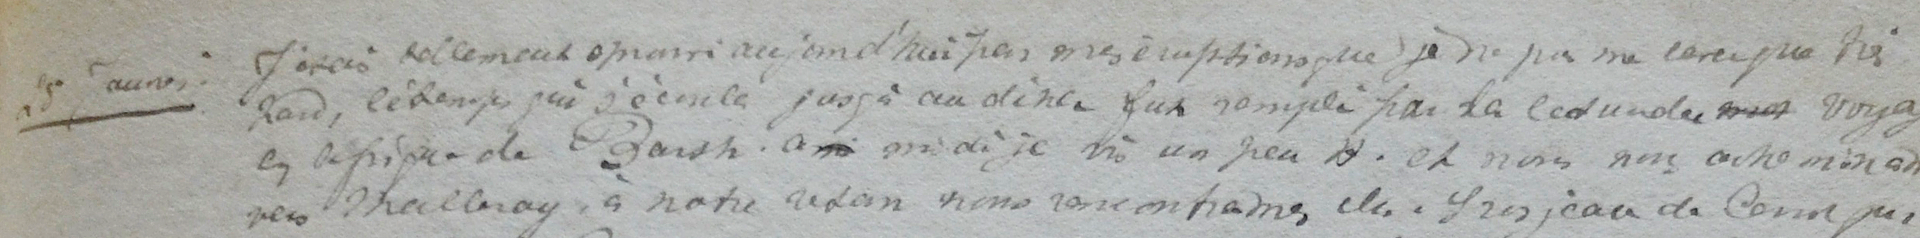 25 Janvi. J'étais tellement epuisé aujourd'hui par mes éruptions que je ne pus me lever que très
tard, le temps qui s'écoula jusqu'à au diner fut rempli par la lecture de voyag
en Afrique de Barth. a midi je vis un peu H. et nous nous acheminam
vers Malleray, à notre retour nous rencontrames Mr. Grosjean de Court qui